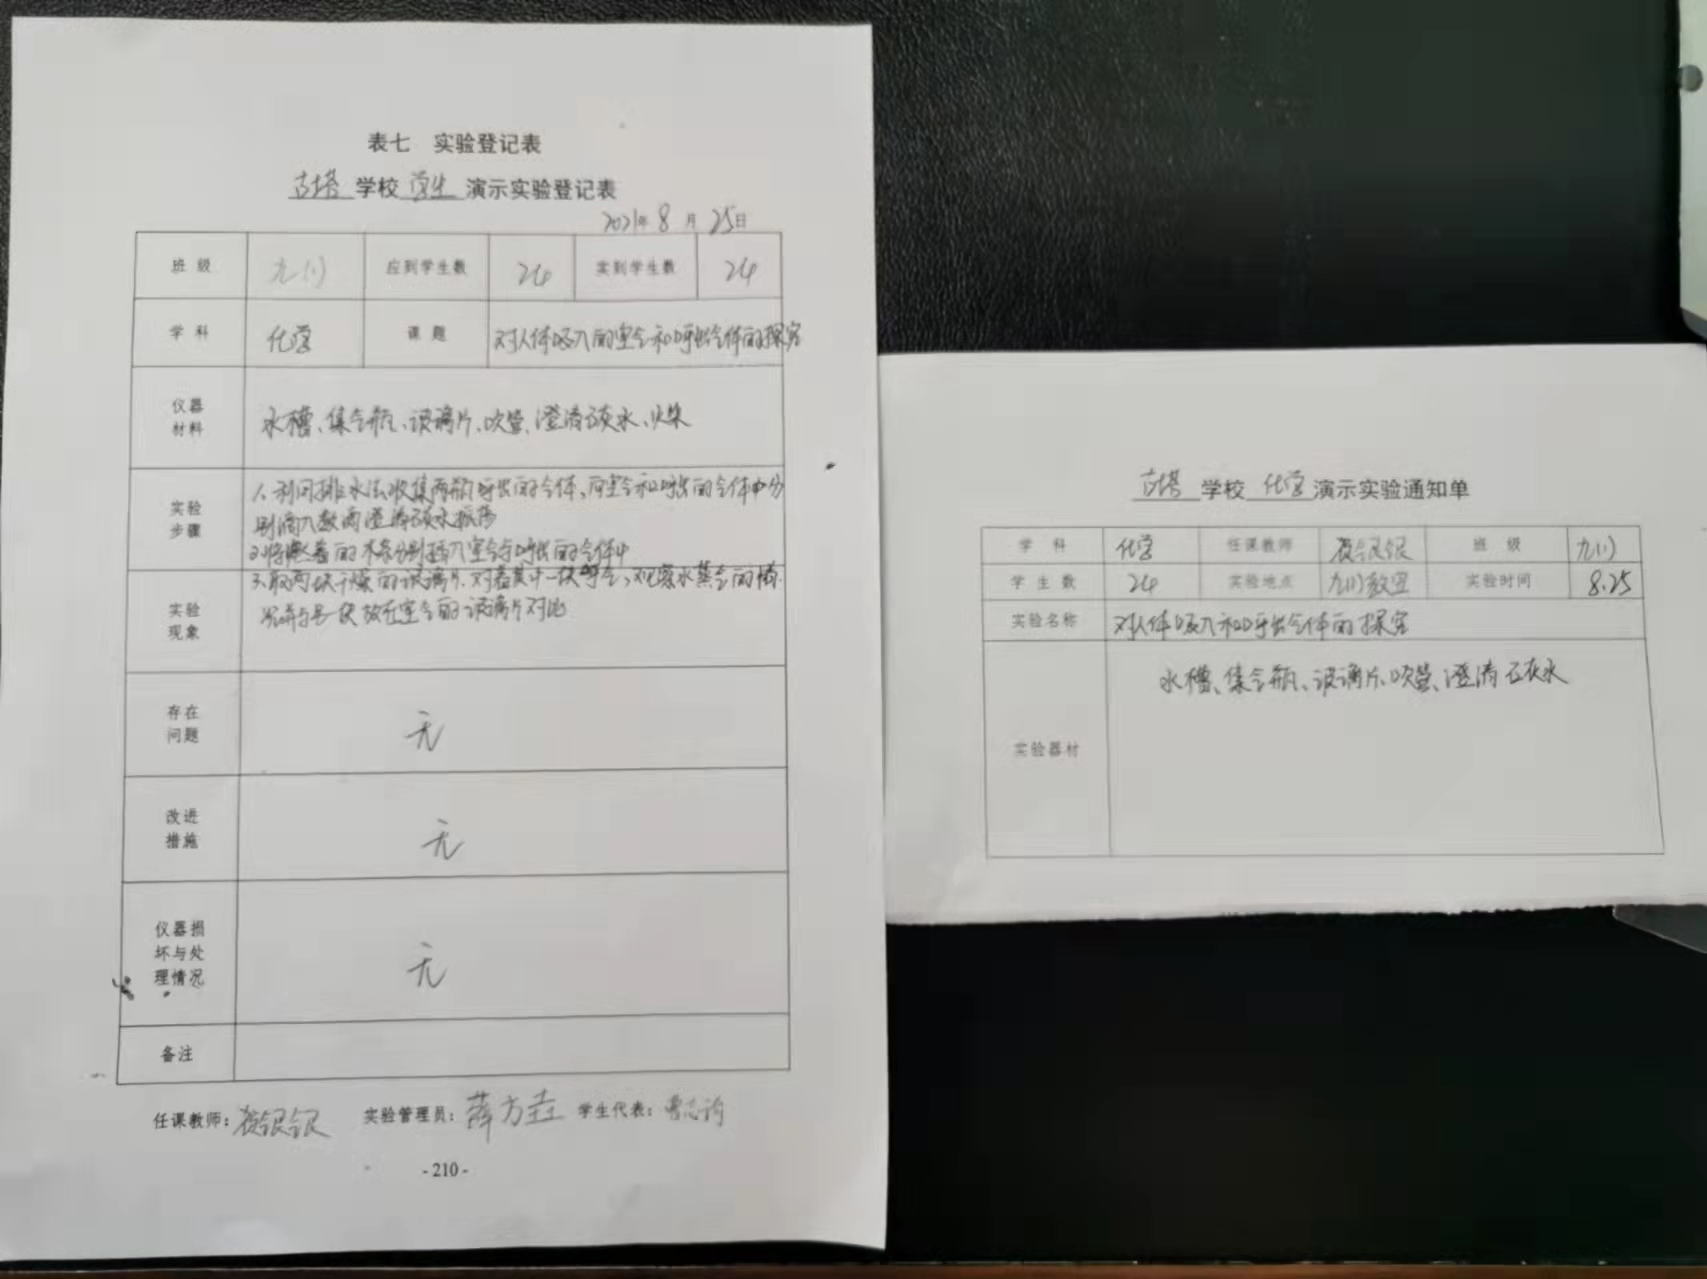 表七 实验登记表
古塔 学校 学生 演示实验登记表
2021年 8 月 25日
班 级 九(1) 应到学生数 24 实到学生数 24
学 科 化学 课 题 对人体吸入的空气和呼出气体的探究
仪器
材料
水槽、集气瓶、玻璃片、吹管、澄清石灰水、火柴
实验
步骤
1、利用排水法收集两瓶呼出的气体,向空气和呼出的气体中分
别滴入数滴澄清石灰水振荡
2、将燃着的木条分别插入空气与呼出的气体中
实验
现象
3、取两块干燥的玻璃片,对着其中一块呼气,观察水蒸气的情
况并与另一块放在空气的玻璃片对比
存在
问题
无
改进
措施
无
仪器损
坏与处
理情况
无
备注
任课教师: 实验管理员: 薛方 学生代表: 曹志
- 210 -
古塔 学校 化学 演示实验通知单
学 科 化学 任课教师 班 级 九(1)
学 生 数 24 实验地点 九(1)教室 实验时间 8.25
实验名称 对人体吸入和呼出气体的探究
实验器材
水槽、集气瓶、玻璃片、吹管、澄清石灰水